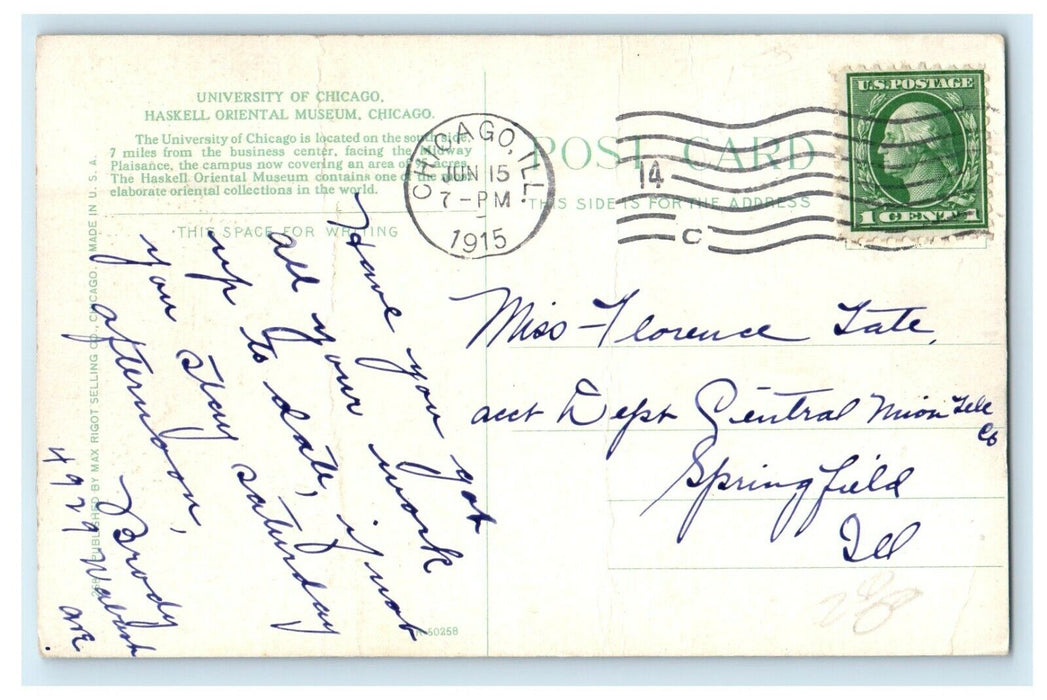 UNIVERSITY OF CHICAGO,
HASKELL ORIENTAL MUSEUM, CHICAGO.
The University of Chicago is located on the south side,
7 miles from the business center, facing the Midway
Plaisance, the campus now covering an area of acres.
The Haskell Oriental Museum contains one of the most
elaborate oriental collections in the world.
THIS SPACE FOR WRITING
PUBLISHED BY MAX RIGOT SELLING CO., CHICAGO. MADE IN U. S. A.
Have you got
all your work
up to date, if not
you stay saturday
afternoon,
Brody
4929 Wabash
ave.
50258
CHICAGO, ILL.
JUN 15
7-PM
1915
14
C
POST CARD
THIS SIDE IS FOR THE ADDRESS
U.S. POSTAGE
1 CENT 1
Miss Florence Tate,
acct Dept Central Union Tele
Co
Springfield
Ill